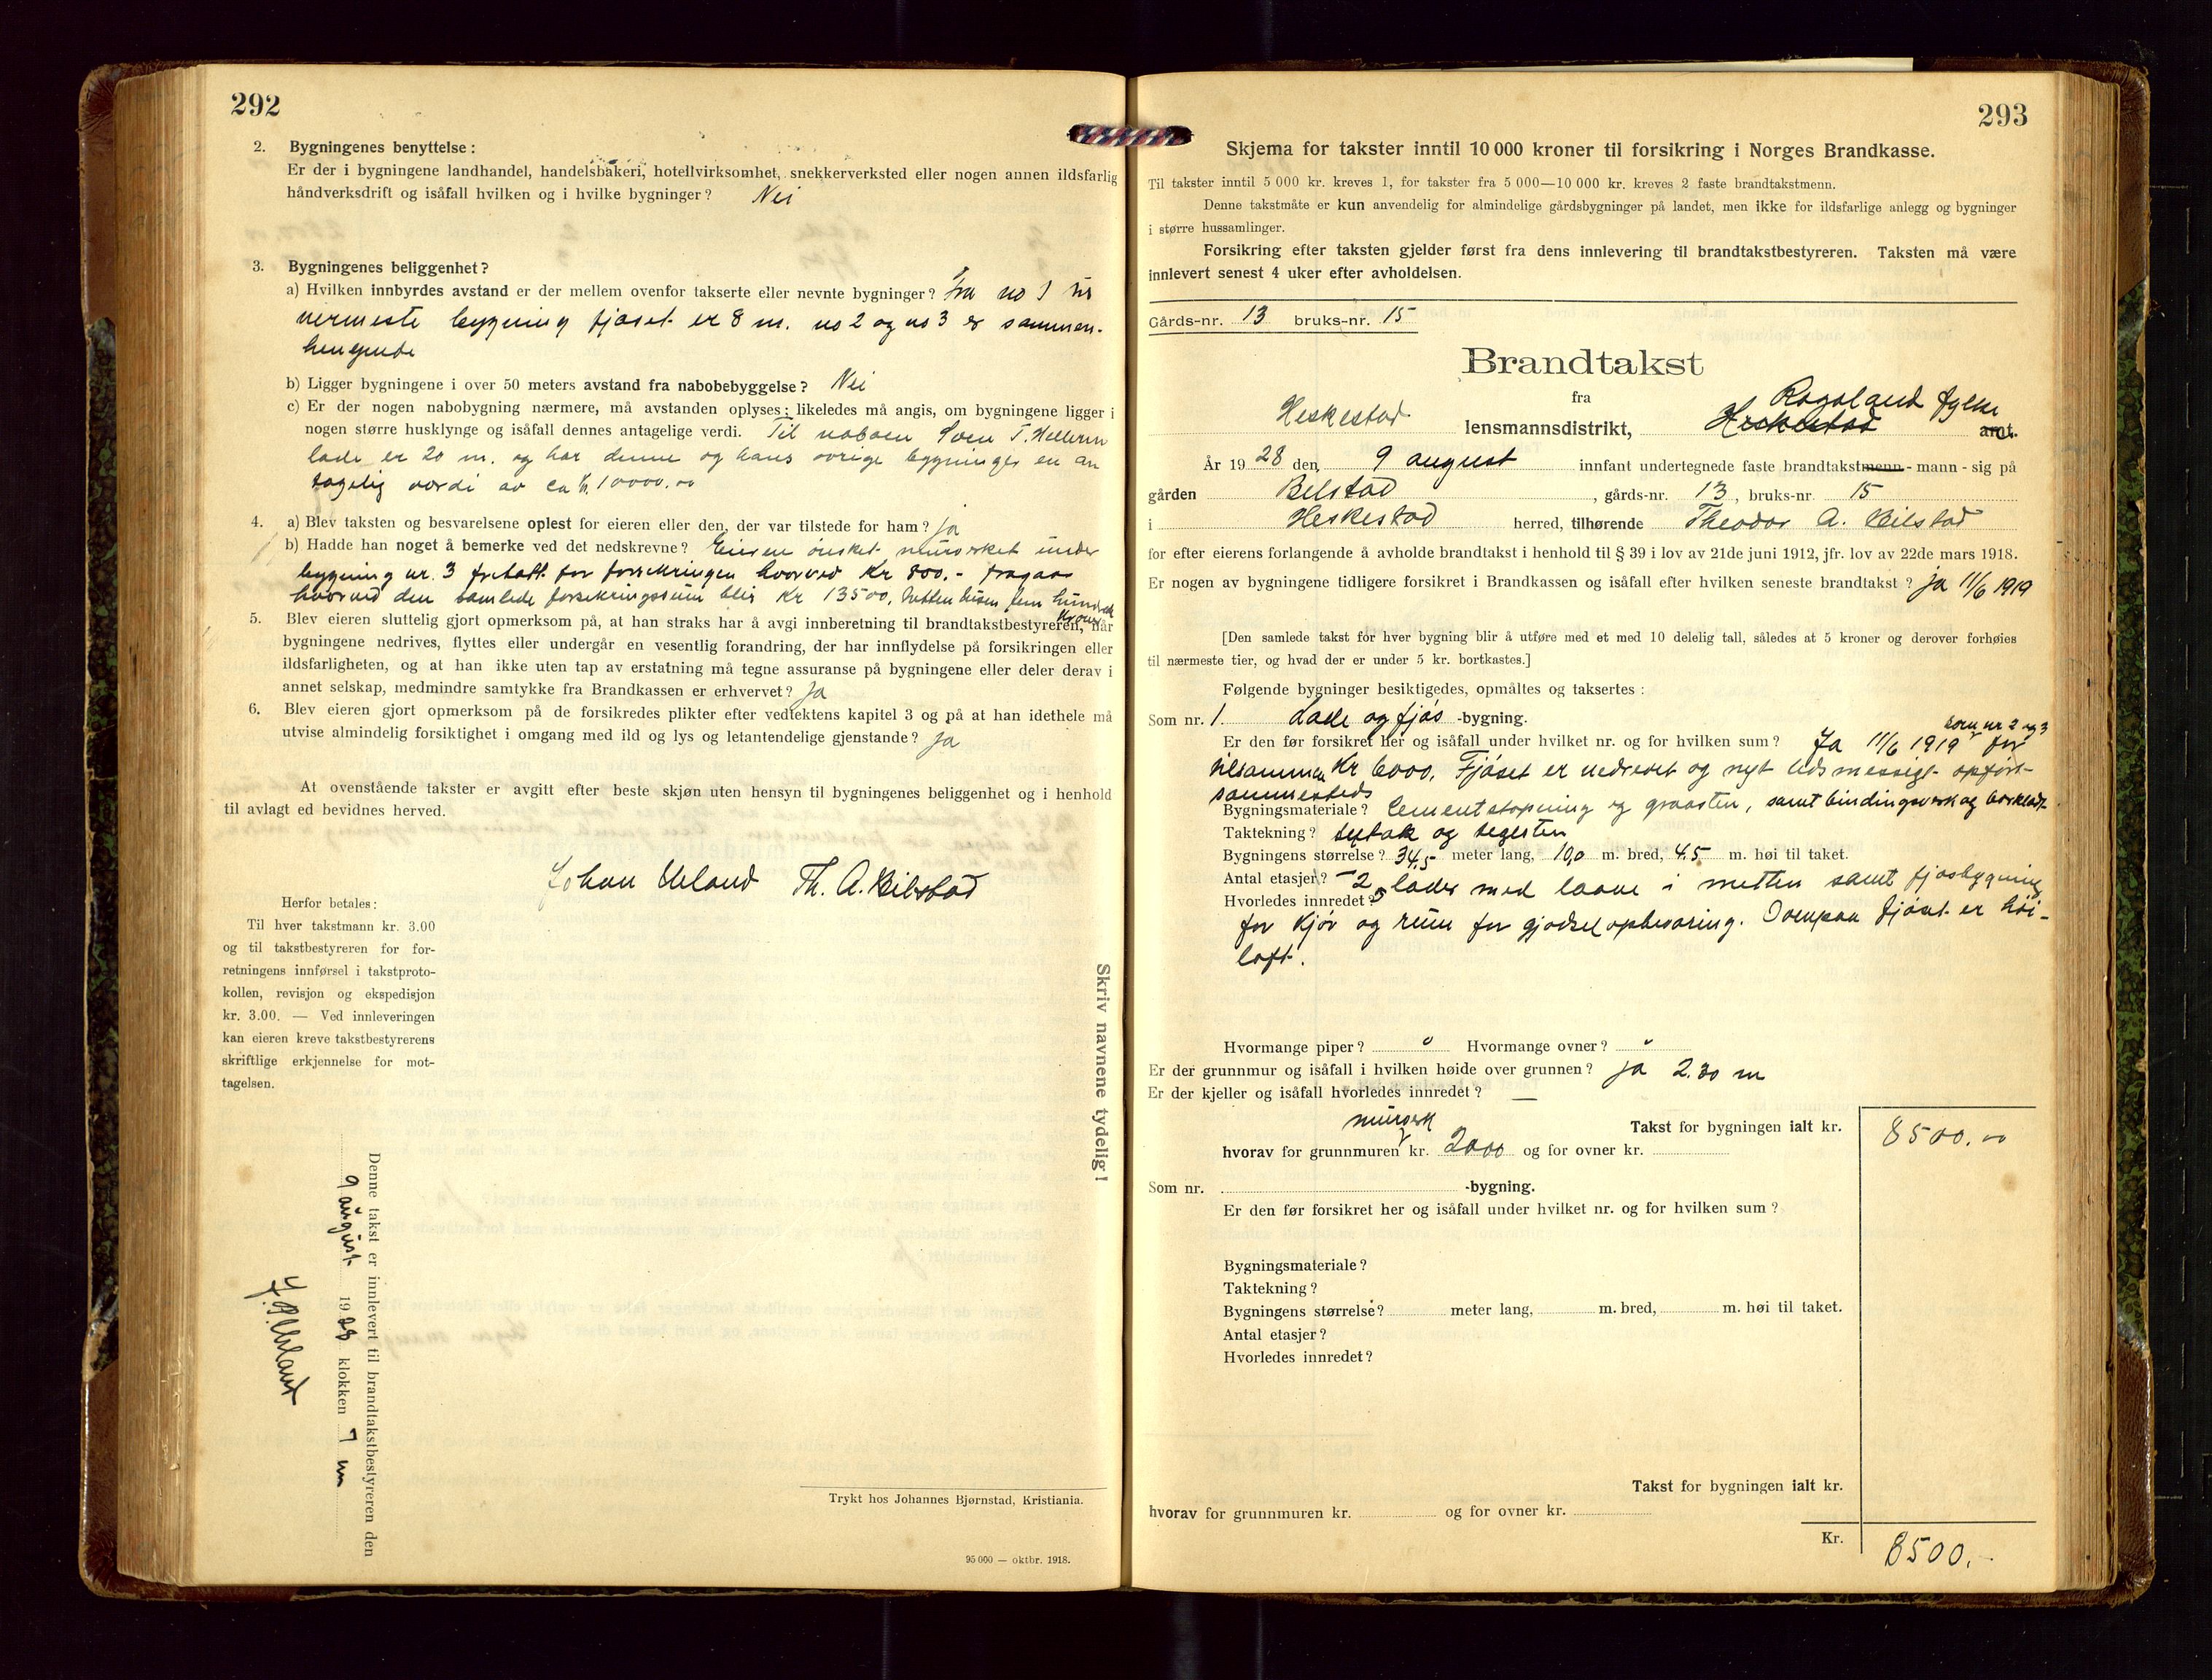 292
2. Bygningenes benyttelse:
Er der i bygningene landhandel, handelsbakeri, hotellvirksomhet, snekkerverksted eller nogen annen ildsfarlig
håndverksdrift og isåfall hvilken og i hvilke bygninger? Nei
3. Bygningenes beliggenhet?
a) Hvilken innbyrdes avstand er der mellem ovenfor takserte eller nevnte bygninger? fra no 1 til
nermeste bygning fjøset er 8 m. no 2 og no 3 er sammen-
hengende
b) Ligger bygningene i over 50 meters avstand fra nabobebyggelse? Nei
c) Er der nogen nabobygning nærmere, må avstanden oplyses; likeledes må angis, om bygningene ligger i
nogen større husklynge og isåfall dennes antagelige verdi. Til naboen Sven T.
lade er 20 m. og har denne og hans øvrige bygninger en an
tagelig verdi av ca kr. 10000.00
4. a) Blev taksten og besvarelsene oplest for eieren eller den, der var tilstede for ham? ja
b) Hadde han noget å bemerke ved det nedskrevne? Eieren ønsket murverket under
bygning nr. 3 fratatt for forsikringen hvorved Kr 800.- fragaar
hvorved den samlede forsikringssum blir Kr 13500, tretten tusen fem hundrede
Kroner
5. Blev eieren sluttelig gjort opmerksom på, at han straks har å avgi innberetning til brandtakstbestyreren, når
bygningene nedrives, flyttes eller undergår en vesentlig forandring, der har innflydelse på forsikringen eller
ildsfarligheten, og at han ikke uten tap av erstatning må tegne assuranse på bygningene eller deler derav i
annet selskap, medmindre samtykke fra Brandkassen er erhvervet? Ja
6. Blev eieren gjort opmerksom på de forsikredes plikter efter vedtektens kapitel 3 og på at han idethele må
utvise almindelig forsiktighet i omgang med ild og lys og letantendelige gjenstande? ja
At ovenstående takster er avgitt efter beste skjøn uten hensyn til bygningenes beliggenhet og i henhold
til avlagt ed bevidnes herved.
Johan Ueland Th. A. Bilstad
Herfor betales:
Til hver takstmann kr. 3.00
og til takstbestyreren for for-
retningens innførsel i takstproto-
kollen, revisjon og ekspedisjon
kr. 3.00. — Ved innleveringen
kan eieren kreve takstbestyrerens
skriftlige erkjennelse for mot-
tagelsen.
Skriv navnene tydelig!
Denne takst er innlevert til brandtakstbestyreren den
9 august 1928 klokken 7 em
Trykt hos Johannes Bjørnstad, Kristiania.
95 000 — oktbr. 1918.
293
Skjema for takster inntil 10 000 kroner til forsikring i Norges Brandkasse.
Til takster inntil 5 000 kr. kreves 1, for takster fra 5 000—10 000 kr. kreves 2 faste brandtakstmenn.
Denne takstmåte er kun anvendelig for almindelige gårdsbygninger på landet, men ikke for ildsfarlige anlegg og bygninger
i større hussamlinger.
Forsikring efter taksten gjelder først fra dens innlevering til brandtakstbestyreren. Taksten må være
innlevert senest 4 uker efter avholdelsen.
Gårds-nr. 13 bruks-nr. 15
Brandtakst
fra
Rogaland fylke
Heskestad lensmannsdistrikt, Heskestad amt.
År 1928 den 9 august innfant undertegnede faste brandtakstmenn - mann - sig på
gården Bilstad, gårds-nr. 13, bruks-nr. 15
i Heskestad herred, tilhørende Theodor A. Bilstad
for efter eierens forlangende å avholde brandtakst i henhold til § 39 i lov av 21de juni 1912, jfr. lov av 22de mars 1918.
Er nogen av bygningene tidligere forsikret i Brandkassen og isåfall efter hvilken seneste brandtakst? ja 11/6 1919
[Den samlede takst for hver bygning blir å utføre med et med 10 delelig tall, således at 5 kroner og derover forhøies
til nærmeste tier, og hvad der er under 5 kr. bortkastes.]
Følgende bygninger besiktigedes, opmåltes og taksertes:
Som nr. 1. Lade og fjøs -bygning.
som nr 2 og 3
Er den før forsikret her og isåfall under hvilket nr. og for hvilken sum? Ja 11/6 1919 for
tilsammen Kr 6000. Fjøset er nedrevet og nyt tidsmessigt opført
sammesteds
Bygningsmateriale? Cementstøpning og graasten, samt bindingsverk og bordkledt
Taktekning? og teglsten
Bygningens størrelse? 34,5 meter lang, 10,0 m. bred, 4.5 m. høi til taket.
Antal etasjer? 2
Hvorledes innredet? lader med laave i mitten samt fjøsbygning
for kjør og rum for gjødselopbevaring. Ovenpaa fjøset er høi-
loft.
Hvormange piper? " Hvormange ovner? "
Er der grunnmur og isåfall i hvilken høide over grunnen? ja 2.30 m
Er der kjeller og isåfall hvorledes innredet? —
murverk
Takst for bygningen ialt kr. 8500.00
hvorav for grunnmuren kr. 2000 og for ovner kr.
Som nr. -bygning.
Er den før forsikret her og isåfall under hvilket nr. og for hvilken sum?
Bygningsmateriale?
Taktekning?
Bygningens størrelse? meter lang, m. bred, m. høi til taket.
Antal etasjer?
Hvorledes innredet?
Takst for bygningen ialt kr.
hvorav for grunnmuren kr. og for ovner kr.
Kr. 8500.-